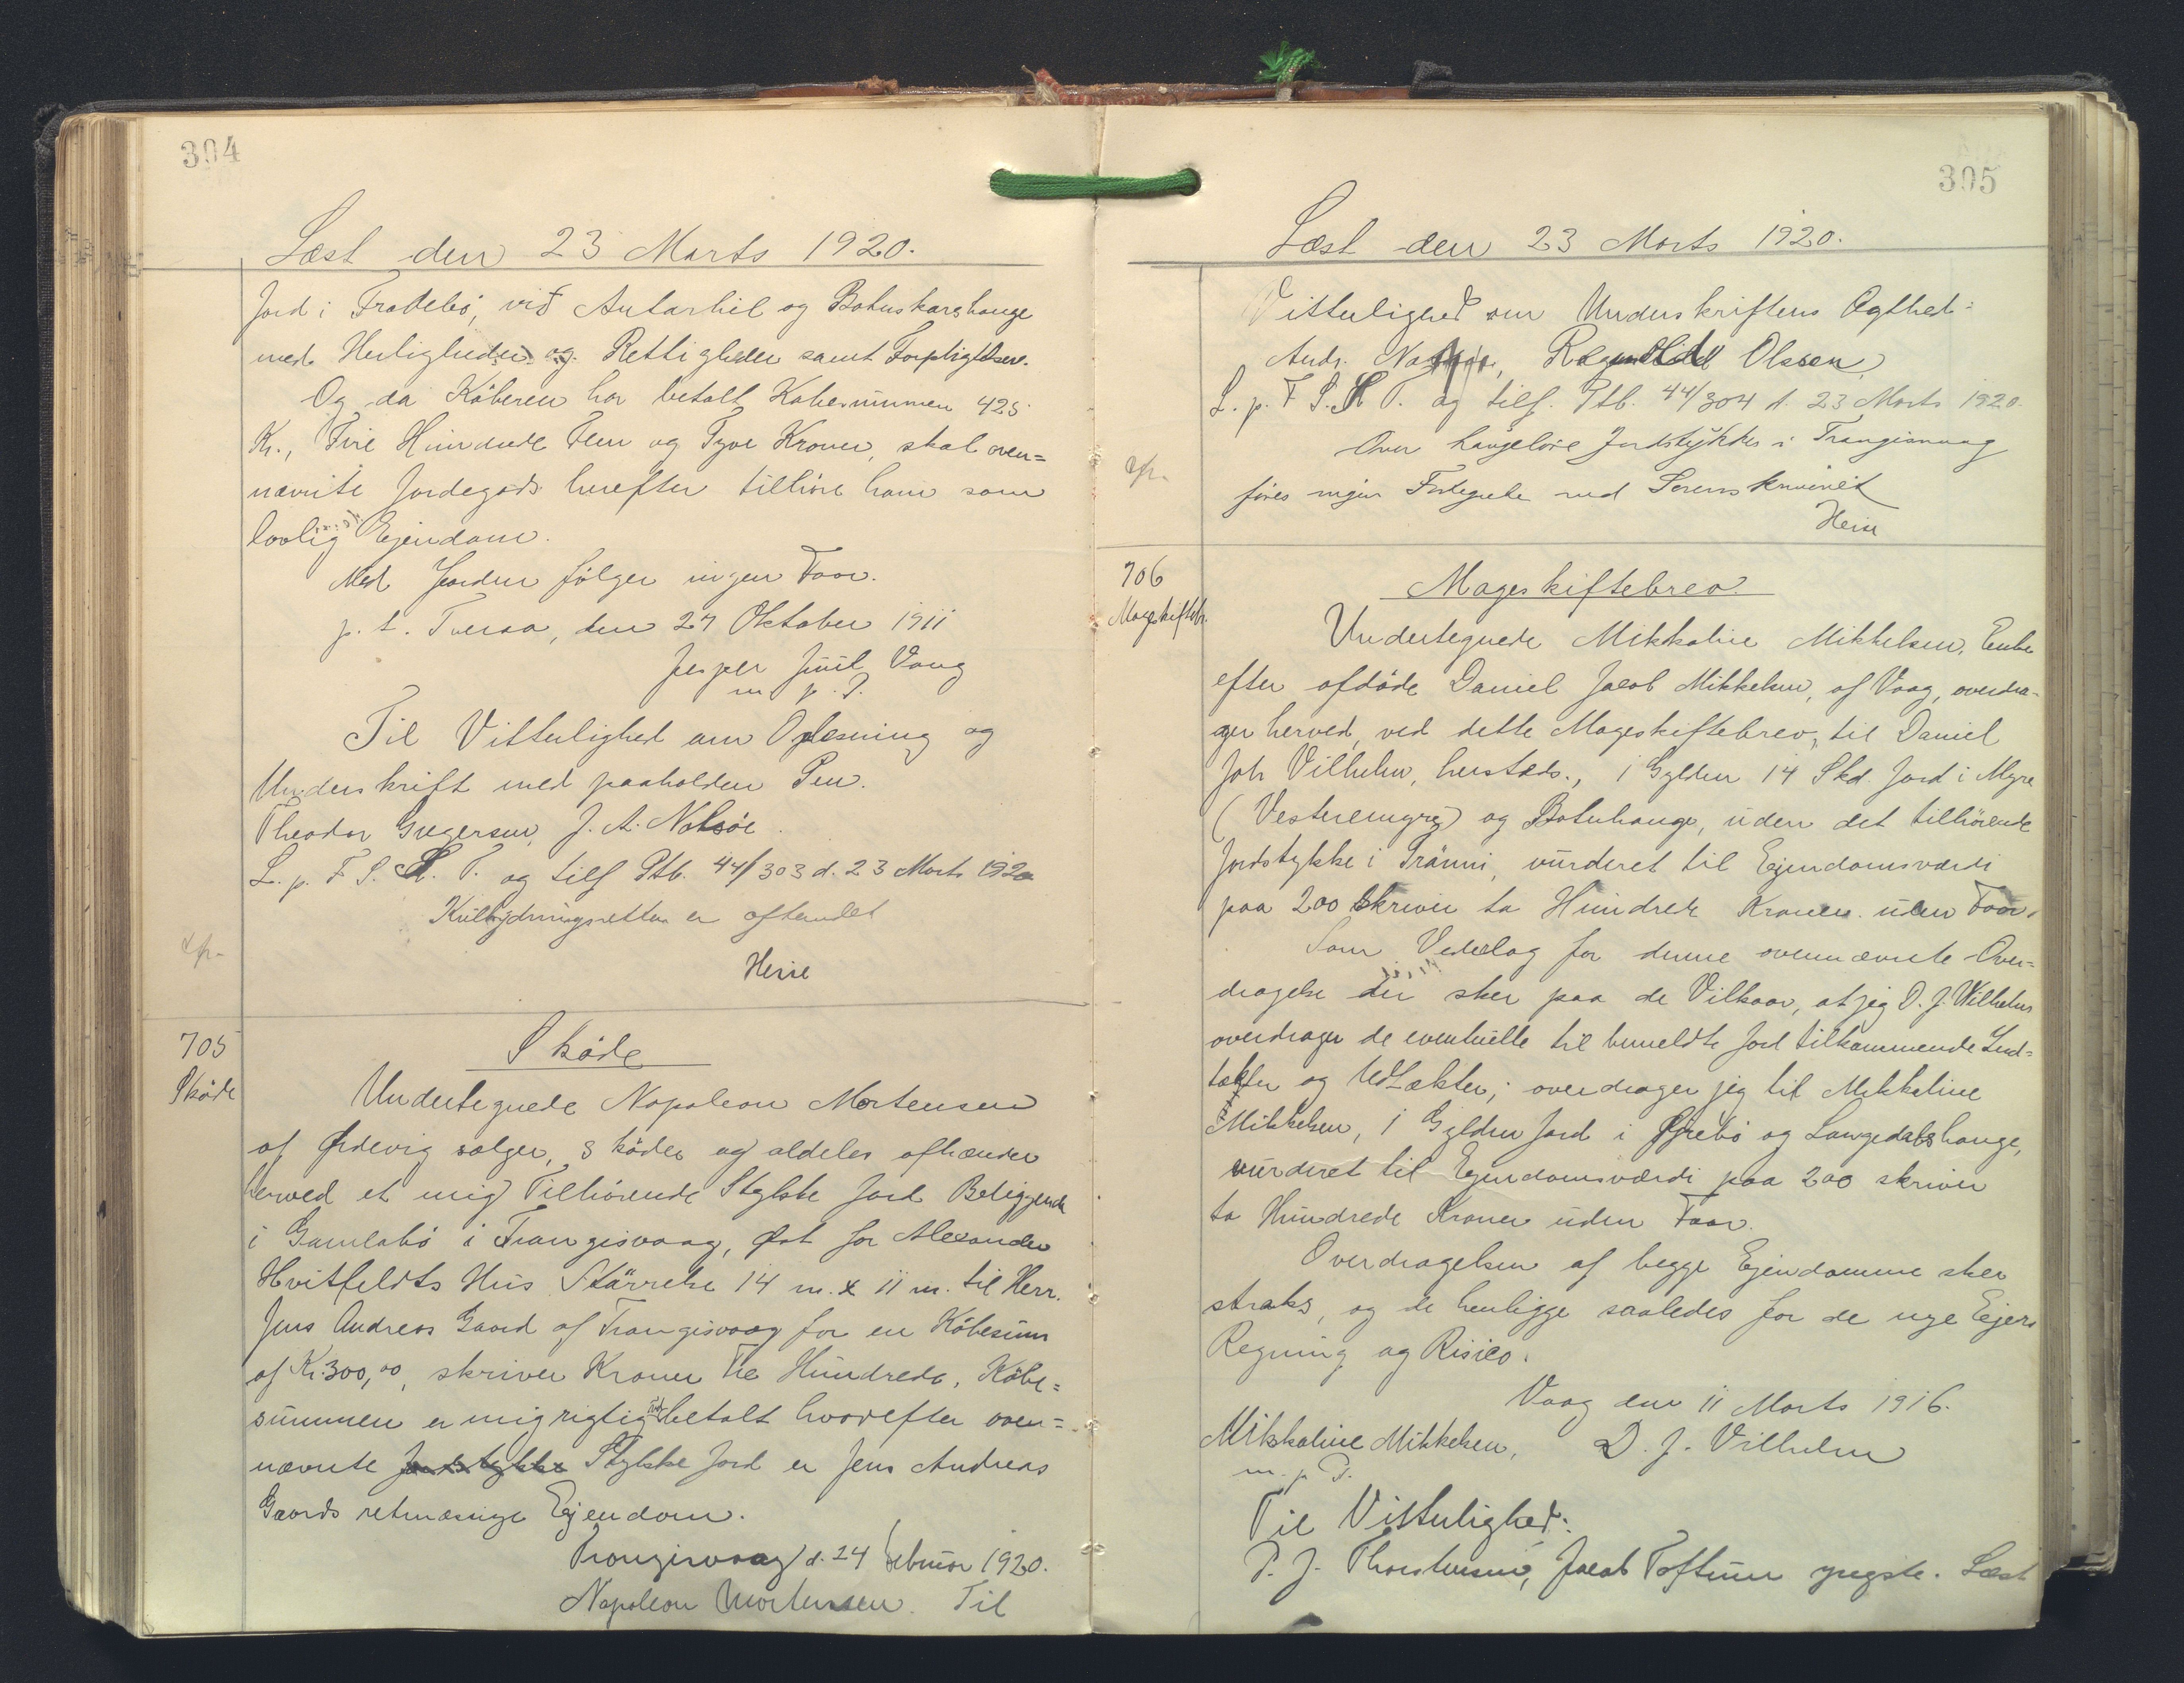 304
Læst den 23 Marts 1920.
Jord i Fradebö, vid Autarhil og Botnskarshauge
med Herligheder og Rettigheder samt Forpligtelser.
Og da Köberen har betalt Köbesummen 425
Kr., Fire Hundrede Fem og Tyve Kroner, skal oven=
nævnte Jordegods herefter tilhöre ham som
lovlig Ejendom.
Med Jorden fölger ingen Faar.
p. t. Tveraa, den 27 Oktober 1911
Jesper Juul Vaag
m. p. P.
Til Vitterlighed om Oplæsning og
Underskrift med paaholden Pen.
Theodor Gregersen, J. A. Nolsöe.
L. p. F. S. T. og tilf Ptb. 44/303 d. 23 Marts 1920
er afhendet
Heise
705
Sköde
Sköde
Undertegnede Napoleon Mortensen
af Ørdevig sælger, sköder og aldeles afhænder
herved et mig Tilhörende Stykke Jord Beliggende
i Gamlabö i Trangisvaag, Øst for Alexander
Hvitfeldts Hus Störrelse 14 m. x 11 m. til Herr.
Jens Andreas Gaard af Trangisvaag for en Köbesum
af Kr. 300,00, skriver Kroner Tre Hundrede. Köbe=
summen er mig rigtig betalt hvorefter oven=
nævnte Jordstykke Stykke Jord er Jens Andreas
Gaards retmæssige Ejendom.
Trongisvaag d. 24 Februar 1920.
Napoleon Mortensen. Til
305
Læst den 23 Marts 1920.
Vitterlighed om Underskriftens Ægthed:
Andr. Olssen,
L. p. F. S. T. og tilf. Ptb. 44/304 d. 23 Marts 1920.
Over Jordstykker i Trangisvaag
föres ingen Fortegnelse ved Sorenskriveriet
Heise
706
Mageskiftebr.
Mageskiftebrev.
Undertegnede Mikkaline Mikkelsen, Enke
efter afdöde Daniel Jacob Mikkelsen, af Vaag, overdra-
ger herved, ved dette Mageskiftebrev, til Daniel
Joh Vilhelm, hersteds., 1 Gylden 14 Skd. Jord i Myre
(Vesteremyre) og Botnhauge, uden det tilhörende
Jordstykke i Tränni, vurderet til Ejendomsværdi
paa 200 skriver to Hundrede Kroner uden Faar.
Som Vederlag for denne ovennævnte Over=
dragelse der sker paa de Vilkaar, at jeg D. J. Wilhelm
overdrager de eventuelle til bemeldte Jord tilkommende Ind=
tækter og Udtækter; overdrager jeg til Mikkaline
Mikkelsen, 1 Gylden Jord i Øjrebö og Langedalshauge,
vurderet til Ejendomsværdi paa 200 skriver
to Hundrede Kroner uden Faar.
Overdragelsen af begge Ejendomme sker
straks, og de henligge saaledes for de nye Ejers
Regning og Risico.
Vaag den 11 Marts 1916.
Mikkaline Mikkelsen, D. J. Vilhelm
m. p. P.
Til Vitterlighed:
P. J. Thorsteinsen, Jacob Toftum yngste. Læst